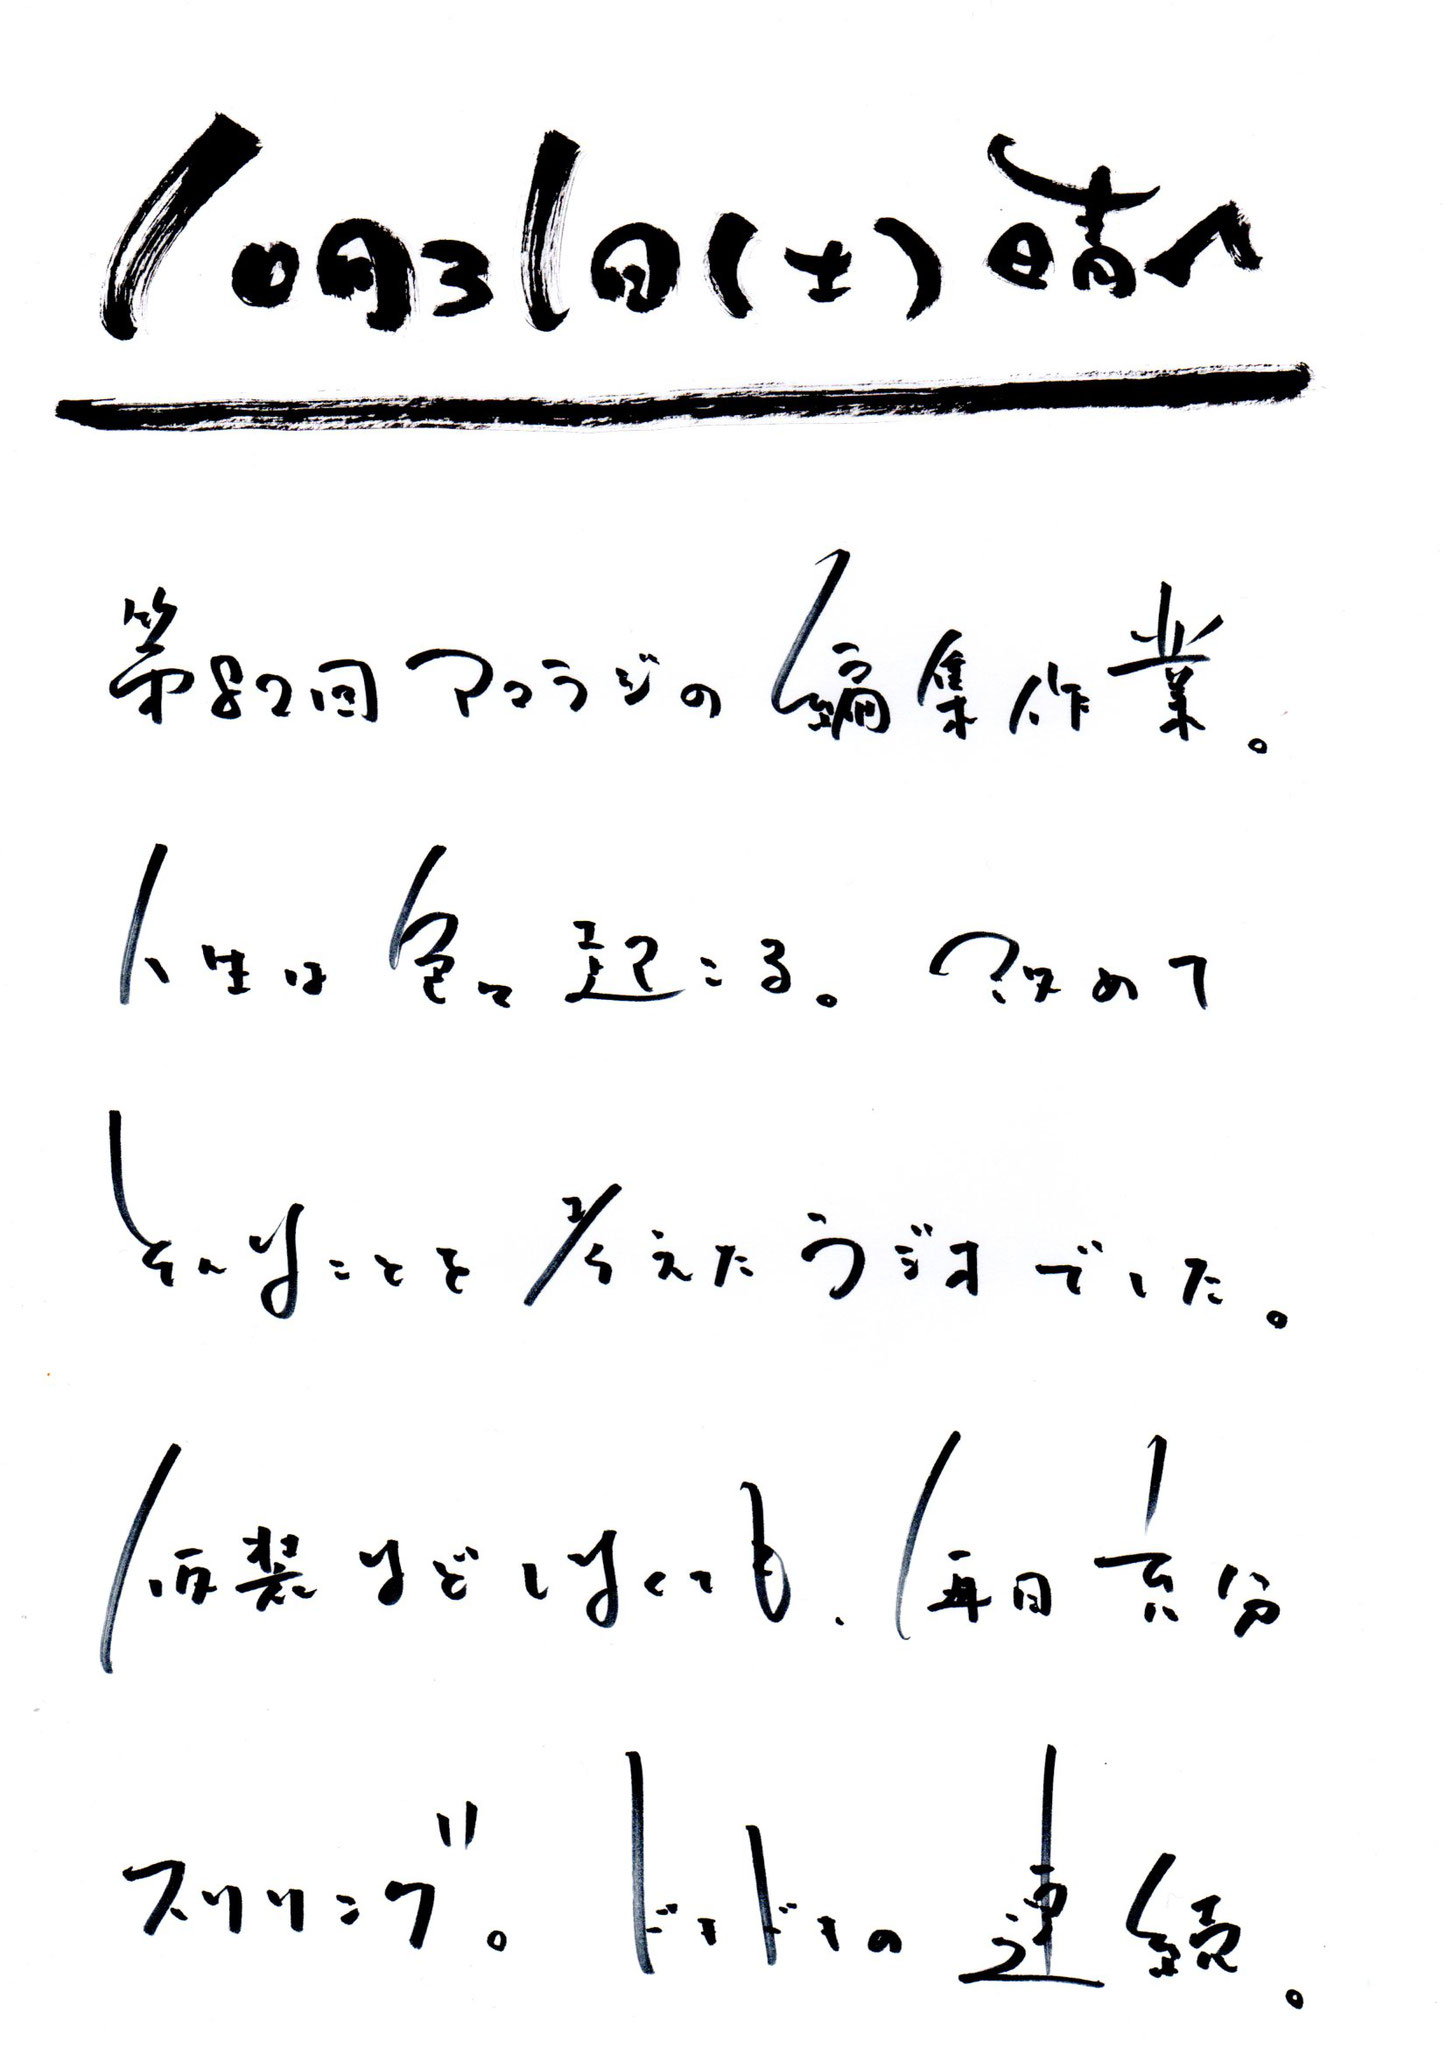 10月31日(土)晴れ
第82回アコラジの編集作業。
人生は色々起こる。改めて
そんなことを考えたラジオでした。
仮装などしなくても、毎日充分
スリリング。ドキドキの連続。